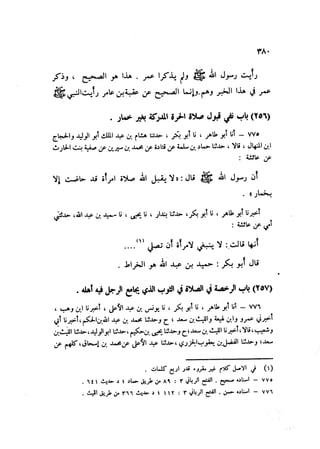 ٣٨٠
رأيت رسول الله ﷺ ولم يذكرا عمر . هذا هو الصحيح ، وذكر
عمر في هذا الخبر وهم.وإنما الصحيح عن عقبة بن عامر رأيت النبي ﷺ
(٢٥٦) باب نفي قبول صلاة الحرة المدركة بغير خمار .
٧٧٥ - أنا أبو طاهر ، نا أبو بكر ، حدثنا هشام بن عبد الملك أبو الوليد والحجاج
ابن المنهال ، قالا ، حدثنا حماد بن سلمة عن قتادة عن محمد بن سيرين عن صفية بنت الحارث
عن عائشة :
أن رسول الله ﷺ قال : « لا يقبل الله صلاة امرأة قد حاضت إلا
بخمار » .
أخبرنا أبو طاهر ، نا أبو بكر ، حدثنا بندار ، نا يحيى ، نا حميد بن عبد الله ، حدثتني
أمي عن عائشة :
أنها قالت : لا ينبغي لامرأة أن تصلي (١) ....
قال أبو بكر : حميد بن عبد الله هو الخراط .
(٢٥٧) باب الرخصة في الصلاة في الثوب الذي يجامع الرجل فيه أهله .
٧٧٦ - أنا أبو طاهر ، نا أبو بكر ، نا يونس بن عبد الأعلى ، أخبرنا ابن وهب ،
أخبرني عمرو وابن لهيعة والليث بن سعد ؛ ح وحدثنا محمد بن عبد الله بن الحكم ، أخبرنا أبي
وشعيب ، قالا ، أخبرنا الليث بن سعد ؛ ح وحدثنا يحيى بن حكيم ، حدثنا أبو الوليد ، حدثنا الليث بن
سعد ؛ وحدثنا الفضل بن يعقوب الجزري ، حدثنا عبد الأعلى عن محمد بن إسحاق ، كلهم عن
(١) في الاصل كلام غير مقروء قدر اربع كلمات .
٧٧٥ - اسناده صحيح . الفتح الرباني ٣ : ٨٩ من طريق حماد ؛ د حديث ٦٤١ .
٧٧٦ - اسناده حسن . الفتح الرباني ٣ : ١١٢ ؛ د حديث ٣٦٦ من طريق الليث .